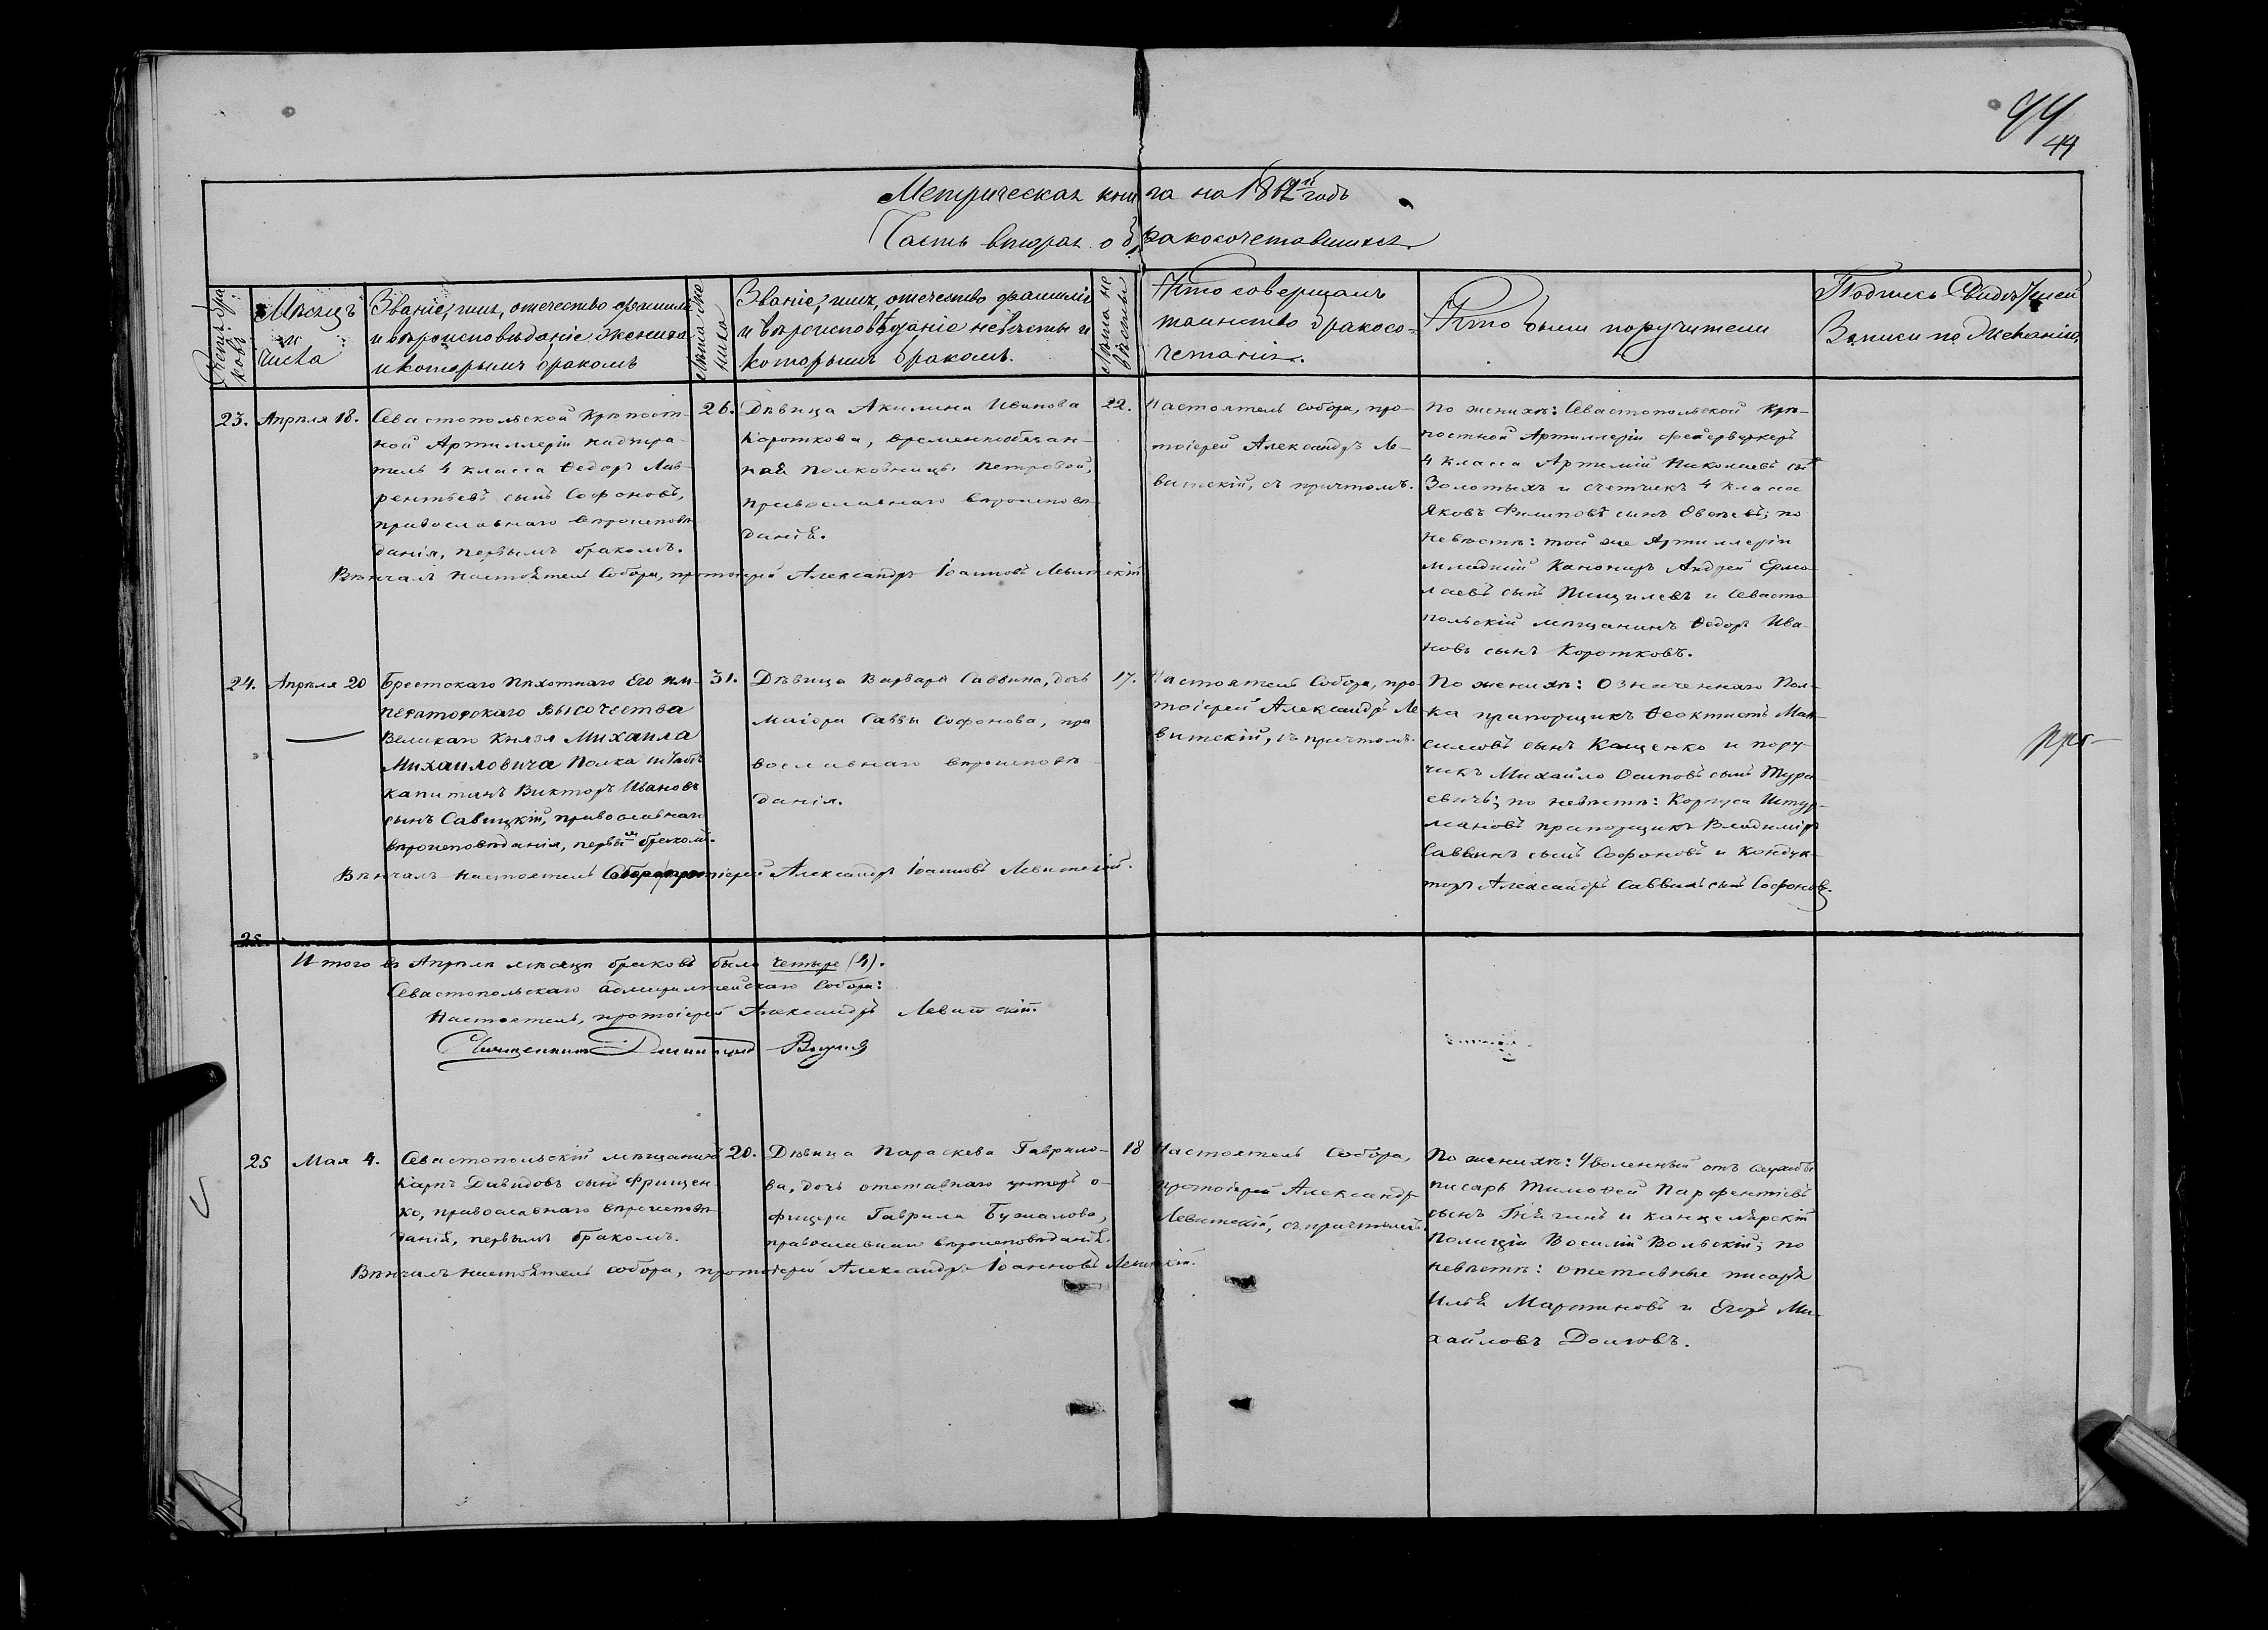 44
44
Метрическая книга на 18 й годъ
Часть вторая о бракосочетавшихся
Счетъ бра
ковъ
Мѣсяцъ
и
числа
Званіе, имя, отечество фамилія
и вѣроисповѣданіе жениха
и которымъ бракомъ
Лѣта же
ниха
Званіе, имя, отечество фамилія
и вѣроисповѣданіе невѣсты и
которымъ бракомъ.
Лѣта не
вѣсты
Кто совершалъ
таинство бракосо-
четанія.
Кто были поручители
Подпись Свидѣтелей
Записи по желанію
23. Апрѣля 18.
Севастопольской крѣпост-
ной Артиллеріи надзира-
тель 4 класса Ѳедоръ Лав-
рентьевъ сынъ Софоновъ,
православнаго вѣроисповѣ-
данія, первымъ бракомъ.
26.
Дѣвица Акилина Иванова
Короткова, временнообязан-
ная Полковницы Петровой,
православнаго вѣроисповѣ-
данія.
22.
Настоятель собора, про-
тоіерей Александръ Ле-
витскій, съ причтомъ.
По женихѣ: Севастопольской крѣ-
постной Артиллеріи фейерверкеръ
4 класса Артемій Николаевъ сынъ
Золотыхъ и счетчикъ 4 класса
Яковъ Филиповъ сынъ; по
невѣстѣ: той же Артиллеріи
младшій Канониръ Андрей Ермо-
лаевъ сынъ и Севасто-
польскій мѣщанинъ Ѳедоръ Ива-
новъ сынъ Коротковъ.
Вѣнчалъ настоятель Собора, протоіерей Александръ Іоанновъ Левитскій
24. Апрѣля 20
Брестскаго Пѣхотнаго Его Им-
ператорскаго Высочества
Великаго Князя Михаила
Михаиловича Полка штабсъ
капитанъ Викторъ Ивановъ
сынъ Савицкій, православнаго
вѣроисповѣданія, первымъ бракомъ.
31.
Дѣвица Варвара Саввина, дочь
маіора Саввы Софонова, пра
вославнаго вѣроисповѣ-
данія.
17.
Настоятель Собора, про-
тоіерей Александръ Ле-
витскій, съ причтомъ.
По женихѣ: Означеннаго Пол-
ка прапорщикъ Ѳеоктистъ Мак-
симовъ сынъ Кащенко и пору-
чикъ Михайло Осиповъ сынъ Тура-
евичъ; по невѣстѣ: Корпуса Штур-
мановъ прапорщикъ Владиміръ
Саввинъ сынъ Софоновъ и Кондук-
торъ Александръ Саввинъ сынъ Софоновъ.
Вѣнчалъ настоятель Собора, протоіерей Александръ Іоанновъ Левитскій.
25.
Итого въ Апрѣлѣ мѣсяцѣ браковъ было четыре (4).
Севастопольскаго адмиралтейскаго Собора:
Настоятель, протоіерей Александръ Левитскій.
Священникъ Димитрій
25 Мая 4.
Севастопольскій мѣщанинъ
Карпъ Давидовъ сынъ Фрищен-
ко, православнаго вѣроисповѣ-
данія, первымъ бракомъ.
20.
Дѣвица Параскева Гаврило-
ва, дочь отставнаго унтеръ о-
фицера Гаврила Бужалова,
православнаго вѣроисповѣданія.
18
Настоятель Собора,
протоіерей Александръ
Левитскій, съ причтомъ.
По женихѣ: Уволенный отъ службы
писарь Тимоѳей Парфентіевъ
сынъ и канцелярскій
Полиціи Василій Вольскій; по
невѣстѣ: отставные писаря
Илья Мартиновъ и Егоръ Ми-
хайловъ Долговъ.
Вѣнчалъ настоятель собора, протоіерей Александръ Іоанновъ Левитскій.